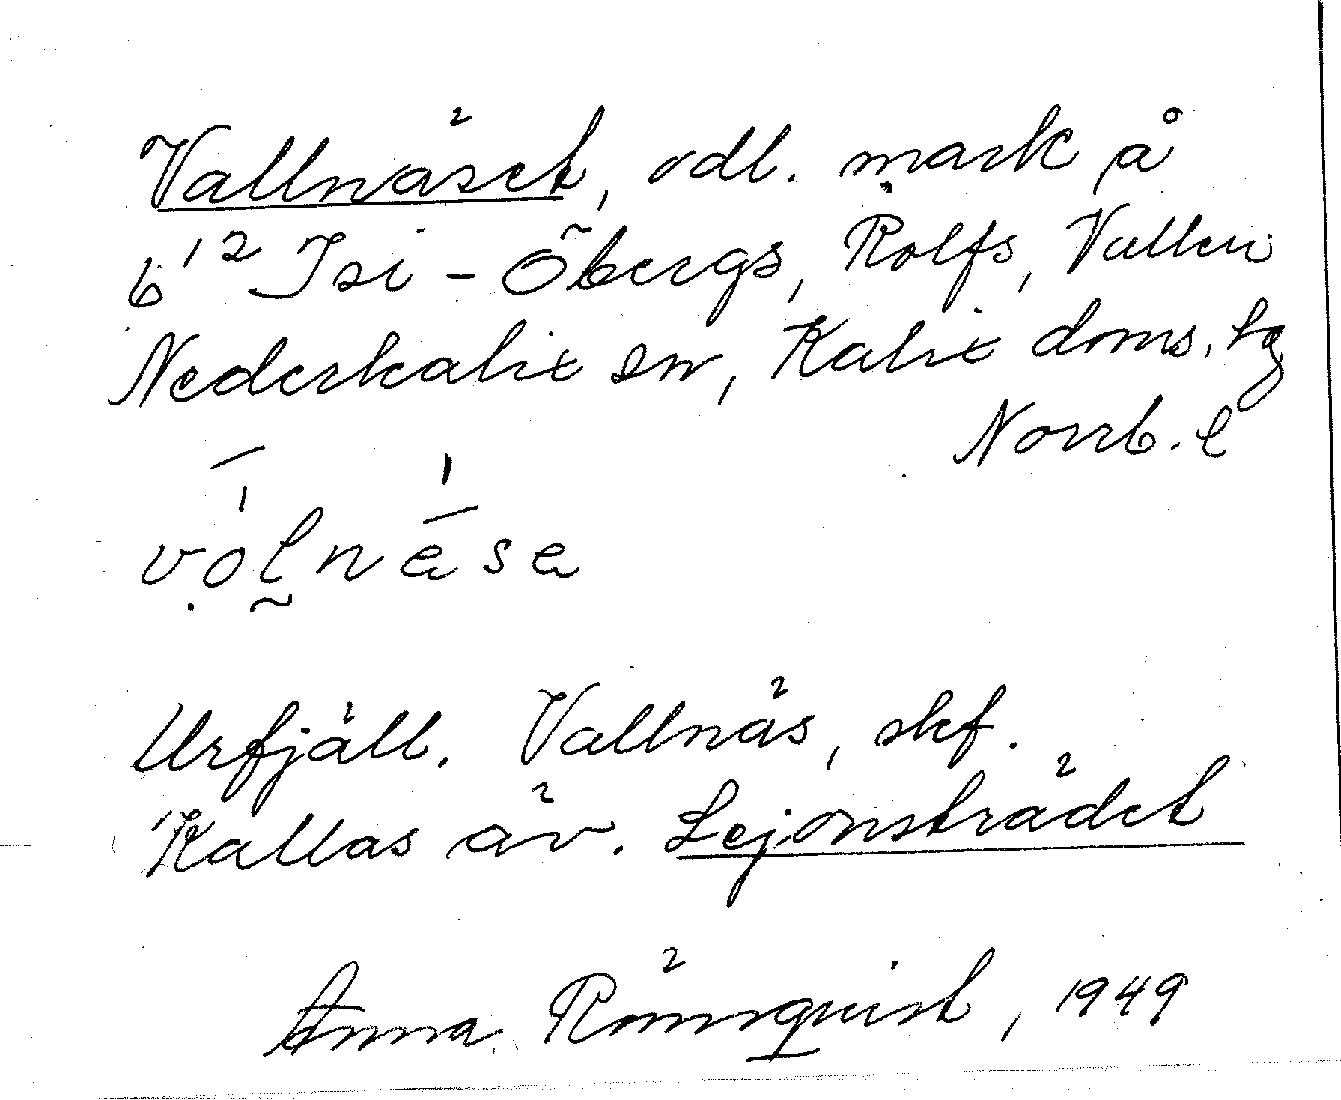 Vallnäset, odl. mark å
6¹² Isi - Öbergs, Rolfs, Vallen
Nederkalix sn, Kalix doms. lg
Norrb. l
vòl̰náse
Urfjäll. Vallnäs, skf.
Kallas äv. Lejonsträdet
Anna Rönnquist, 1949